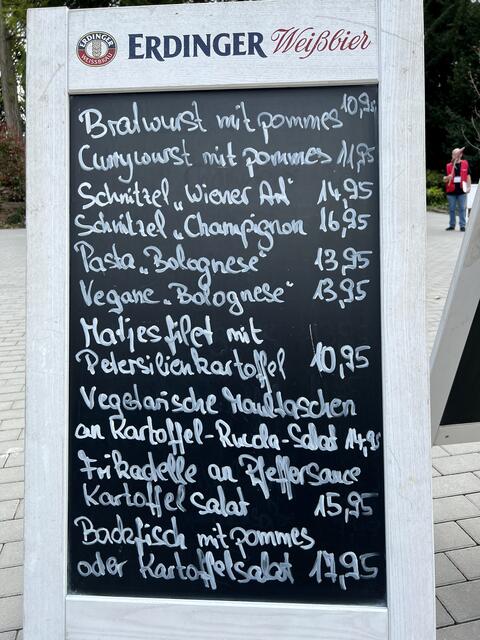 ERDINGER Weißbier
Bratwurst mit pommes 10,95
Currywurst mit pommes 11,95
Schnitzel „Wiener Art" 14,95
Schnitzel „Champignon 16,95
Pasta „Bolognese" 13,95
Vegane „Bolognese" 13,95
Matjesfilet mit
Petersilienkartoffel 10,95
Vegetarische Maultaschen
an Kartoffel-Rucola-Salat 14,95
Frikadelle an Pfeffersauce
Kartoffel salat 15,95
Backfisch mit pommes
oder Kartoffelsalat 17,95